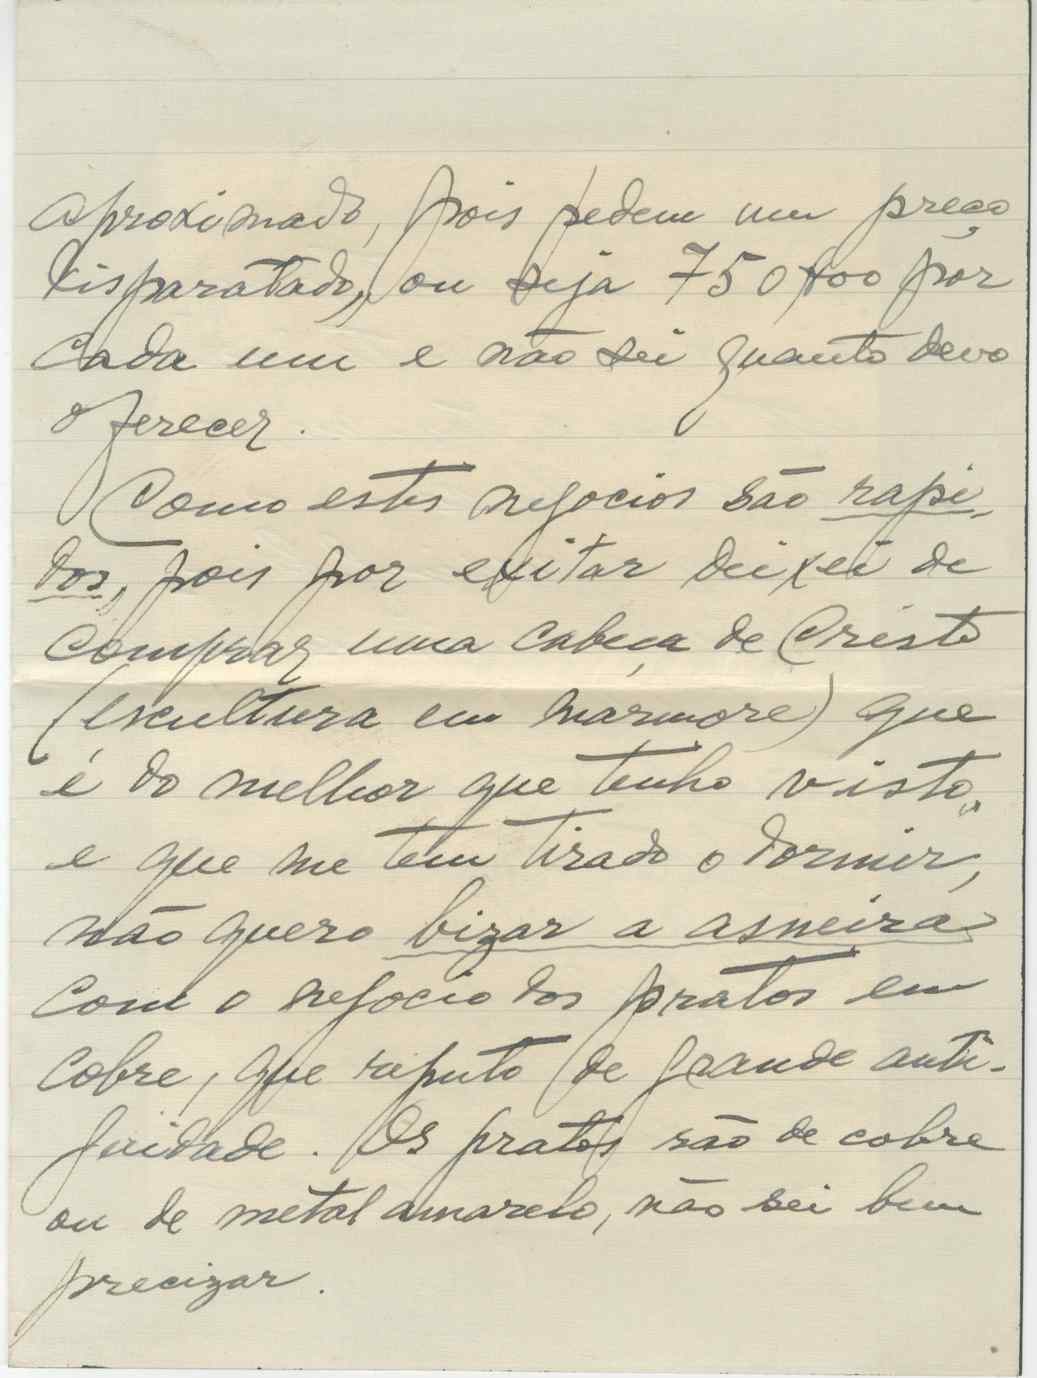 aproximado, pois pedem um preço
disparatado, ou seja 750$00 por
cada um e não sei quanto devo
oferecer.
Como estes negocios são rapi-
dos, pois por exitar deixei de
comprar uma cabeça de Cristo
(escultura em marmore) que
é do melhor que tenho visto,
e que me tem tirado o dormir,
não quero bizar a asneira
com o negocio dos pratos em
cobre, que reputo de grande anti-
guidade. Os pratos são de cobre
ou de metal amarelo, não sei bem
precizar.